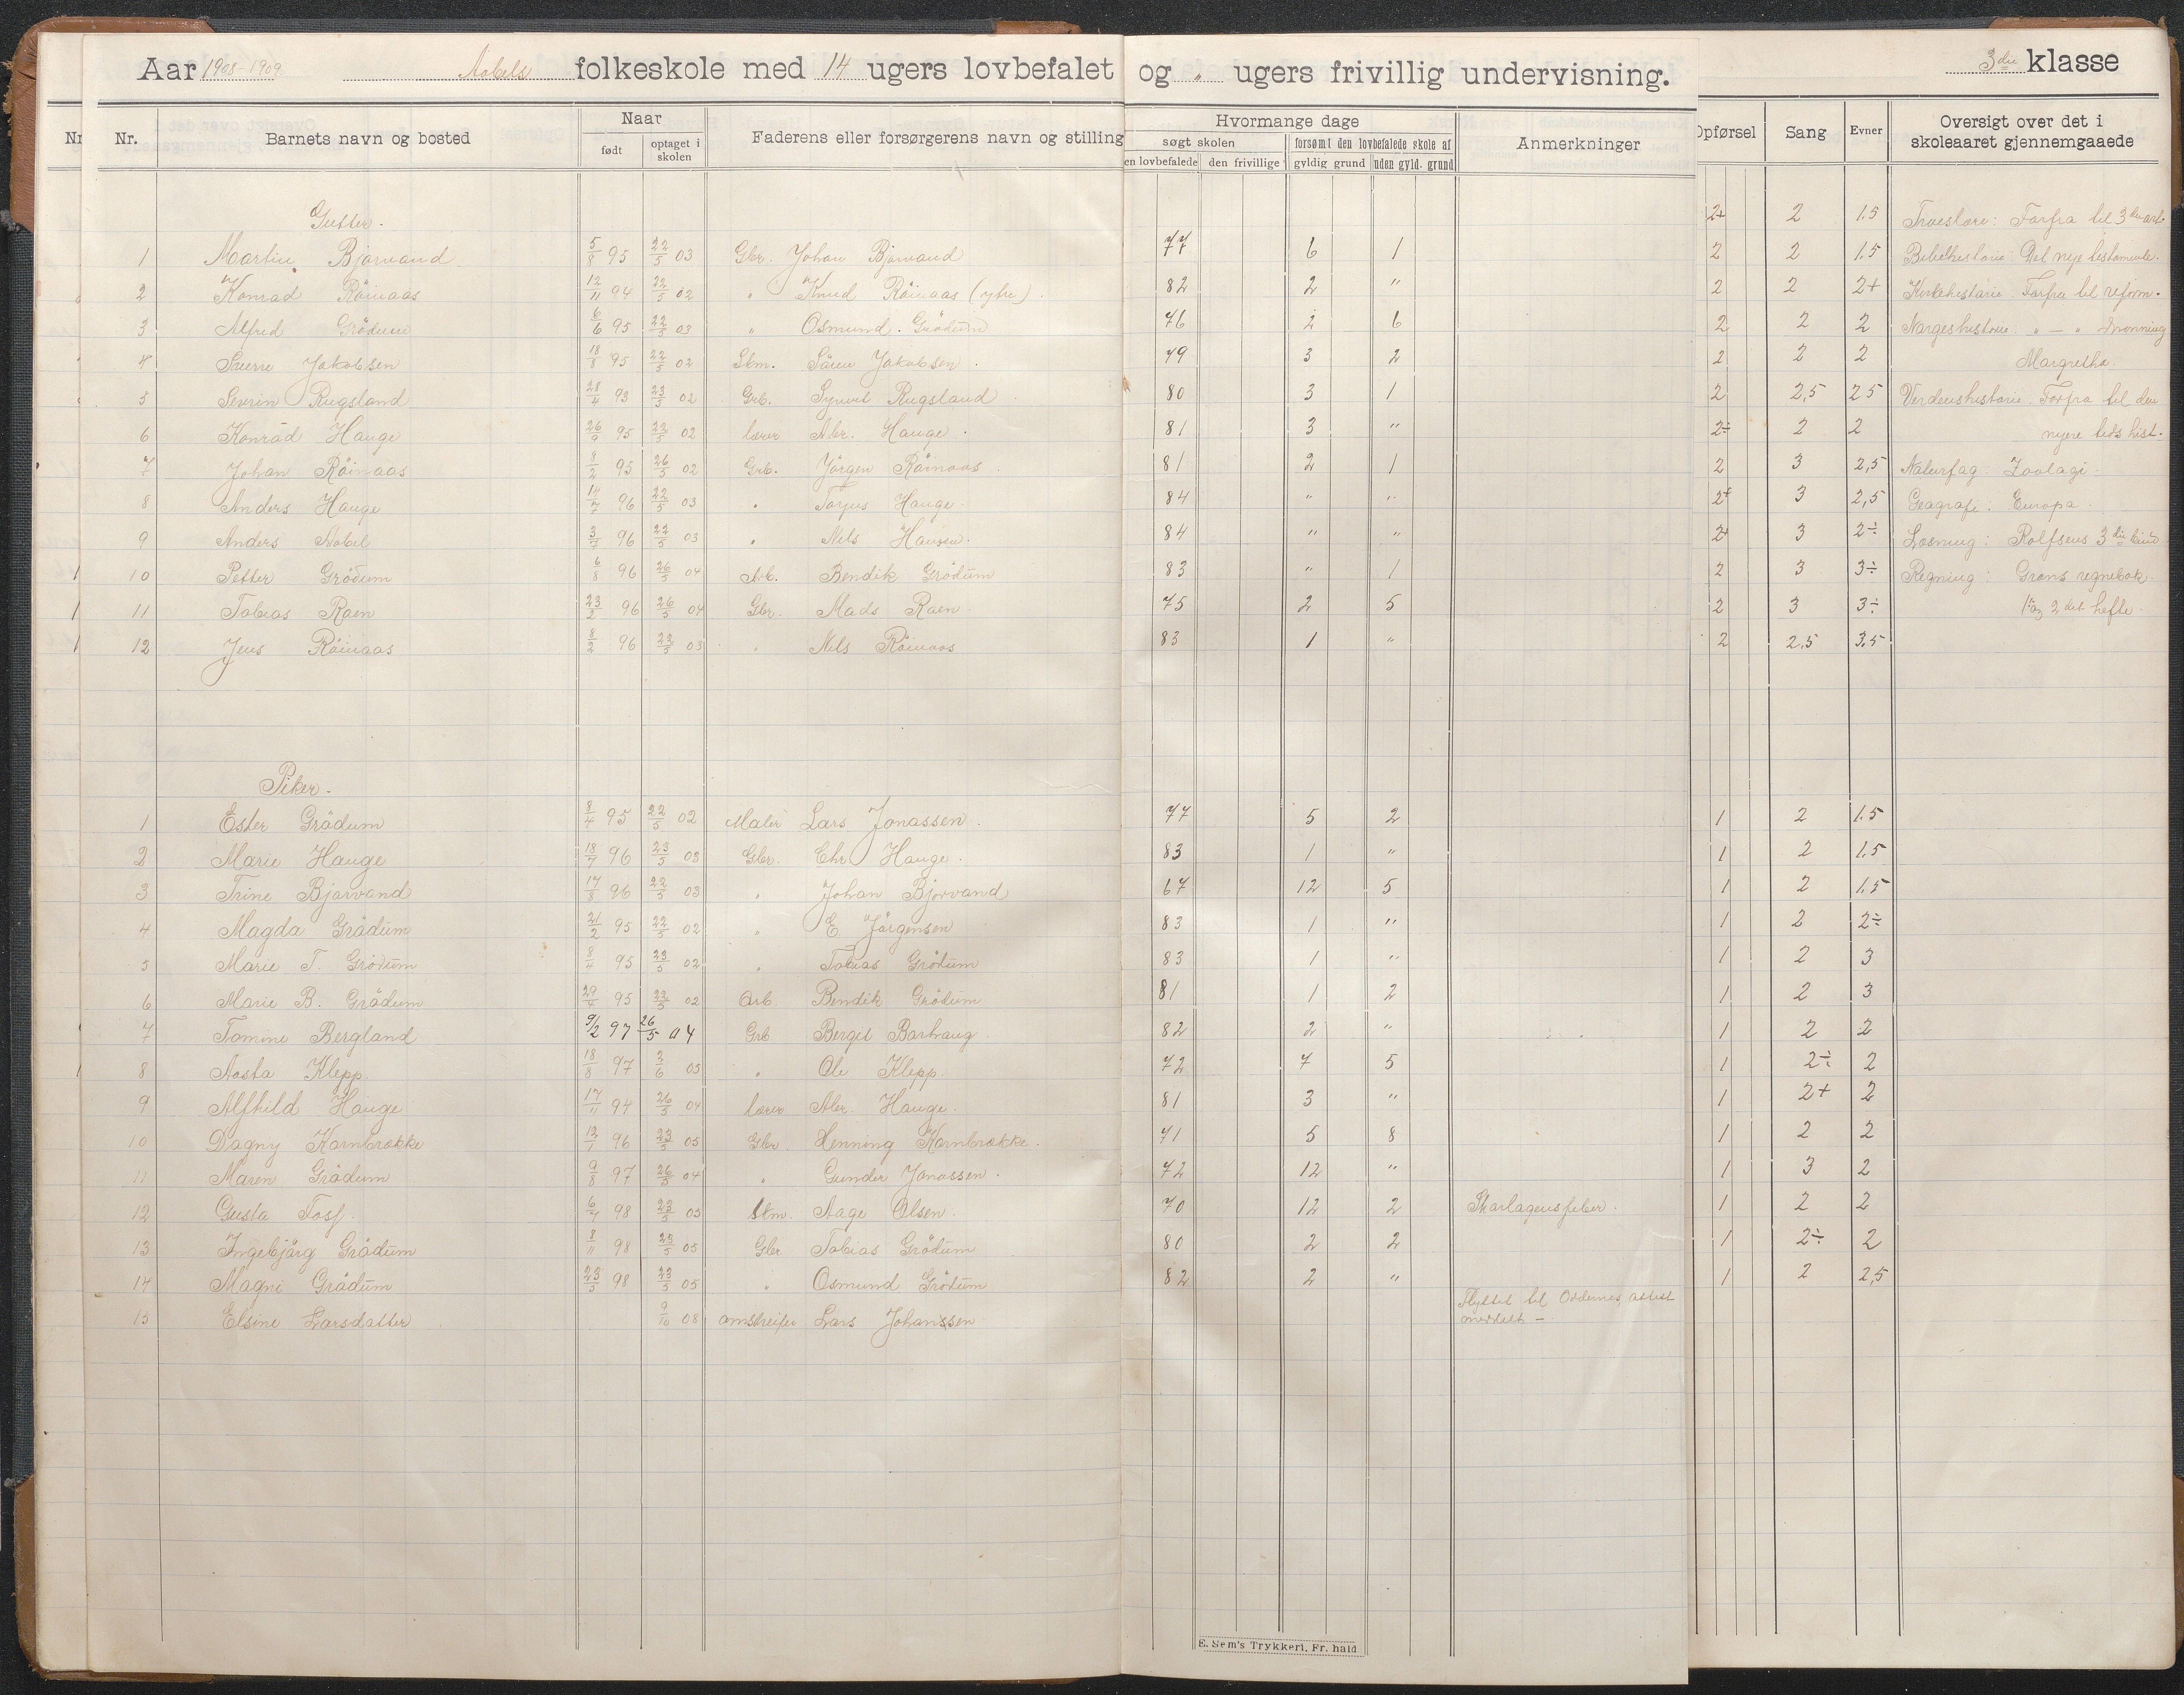 Aar 1908-1909 Aabels folkeskole med 14 ugers lovbefalet og " ugers frivillig undervisning. 3die klasse
Nr. Nr. Barnets navn og bosted Naar Faderens eller forsørgerens navn og stilling Hvormange dage Anmerkninger Opførsel Sang Evner Oversigt over det i skoleaaret gjennemgaaede
født optaget i skolen søgt skolen forsømt den lovbefalede skole af
en lovbefalede den frivillige gyldig grund uden gyld. grund
Gutter. 2+ 2 1.5 Troeslære: Forfra til 3die art.
1 Martin Bjorvand 5/8 95 22/5 03 Gbr. Johan Bjorvand 77 6 1 2 2 1.5 Bibelhistorie: Det nye testamente.
2 Konrad Röinaas 12/11 94 22/5 02 " Knud Röinaas (ytre). 82 2 " 2 2 2+ Kirkehistorie: Forfra til reform.
3 Alfred Grödum 6/6 95 22/5 03 " Osmund Grödum 76 2 6 2 2 2 Norgeshistorie: " — " dronning
4 Sverre Jakobsen 18/8 95 22/5 02 Stm. Sören Jakobsen. 79 3 2 2 2 2 Margretha.
5 Severin Rugsland 28/4 93 23/5 02 Grb. Syvert Rugsland 80 3 1 2 2,5 2 5 Verdenshistorie: Forfra til den
6 Konrad Hauge 26/9 95 23/5 02 lærer Abr. Hauge. 81 3 " 2÷ 2 2 nyere tids hist.
7 Johan Röinaas 8/2 95 26/5 02 Grb. Jörgen Röinaas. 81 2 1 2 3 2,5 Naturfag: Zoologi.
8 Anders Hauge 14/7 96 22/5 03 " Torjus Hauge. 84 " " 2+ 3 2,5 Geografi: Europa.
9 Anders Aabel 3/7 96 22/5 03 " Nels Hansen. 84 " " 2+ 3 2÷ Læsning: Rolfsens 3die bind.
10 Petter Grödum 6/8 96 26/5 04 Arb. Bendik Grödum 83 " 1 2 3 3÷ Regning: Grøns regnebok.
11 Tobias Raen 23/2 96 26/5 04 Gbr. Mads Raen. 75 2 5 2 3 3÷ 1ste og 2det hefte.
12 Jens Röinaas 8/2 96 22/5 03 " Nels Röinaas 83 1 " 2 2.5 3.5
Piker.
1 Ester Grödum 8/4 95 22/5 02 Maler Lars Jonassen. 77 5 2 1 2 1.5
2 Marie Hauge 18/7 96 23/5 03 Gbr. Chr Hauge. 83 1 " 1 2 1.5
3 Trine Bjorvand 17/8 96 22/5 03 " Johan Bjorvand 67 12 5 1 2 1.5
4 Magda Grödum 21/2 95 22/5 02 " E Jörgensen 83 1 " 1 2 2÷
5 Marie T. Grödum 8/4 95 23/5 02 " Tobias Grödum 83 1 " 1 2 3
6 Marie B. Grödum 29/4 95 23/5 02 Arb Bendik Grödum 81 1 2 1 2 3
7 Tomine Bergland 9/2 97 26/5 04 Grb Berget Barhaug 82 2 " 1 2 2
8 Aasta Klepp. 18/8 97 2/6 05 " Ole Klepp. 72 7 5 1 2÷ 2
9 Alfhild Hauge 17/11 94 26/5 04 lærer Abr. Hauge. 81 3 " 1 2+ 2
10 Dagny Kornbrække 12/1 96 23/5 05 Gbr Henning Kornbrække. 71 5 8 1 2 2
11 Maren Grödum 9/8 97 26/5 04 " Gunder Jonassen. 72 12 " 1 3 2
12 Gusta Fosf. 6/4 98 23/5 05 Stm. Aage Olsen. 70 12 2 Skarlagensfeber. 1 2 2
13 Ingebjörg Grödum 8/11 98 23/5 05 Gbr Tobias Grödum 80 2 2 1 2÷ 2
14 Magni Grödum 23/5 98 23/5 05 " Osmund Grödum 82 2 " 1 2 2,5
15 Elsine Larsdatter 9/10 08 Lars Johanssen Flyttet til attest
meddelt —
E. Sem's Trykkeri, Fr.hald.